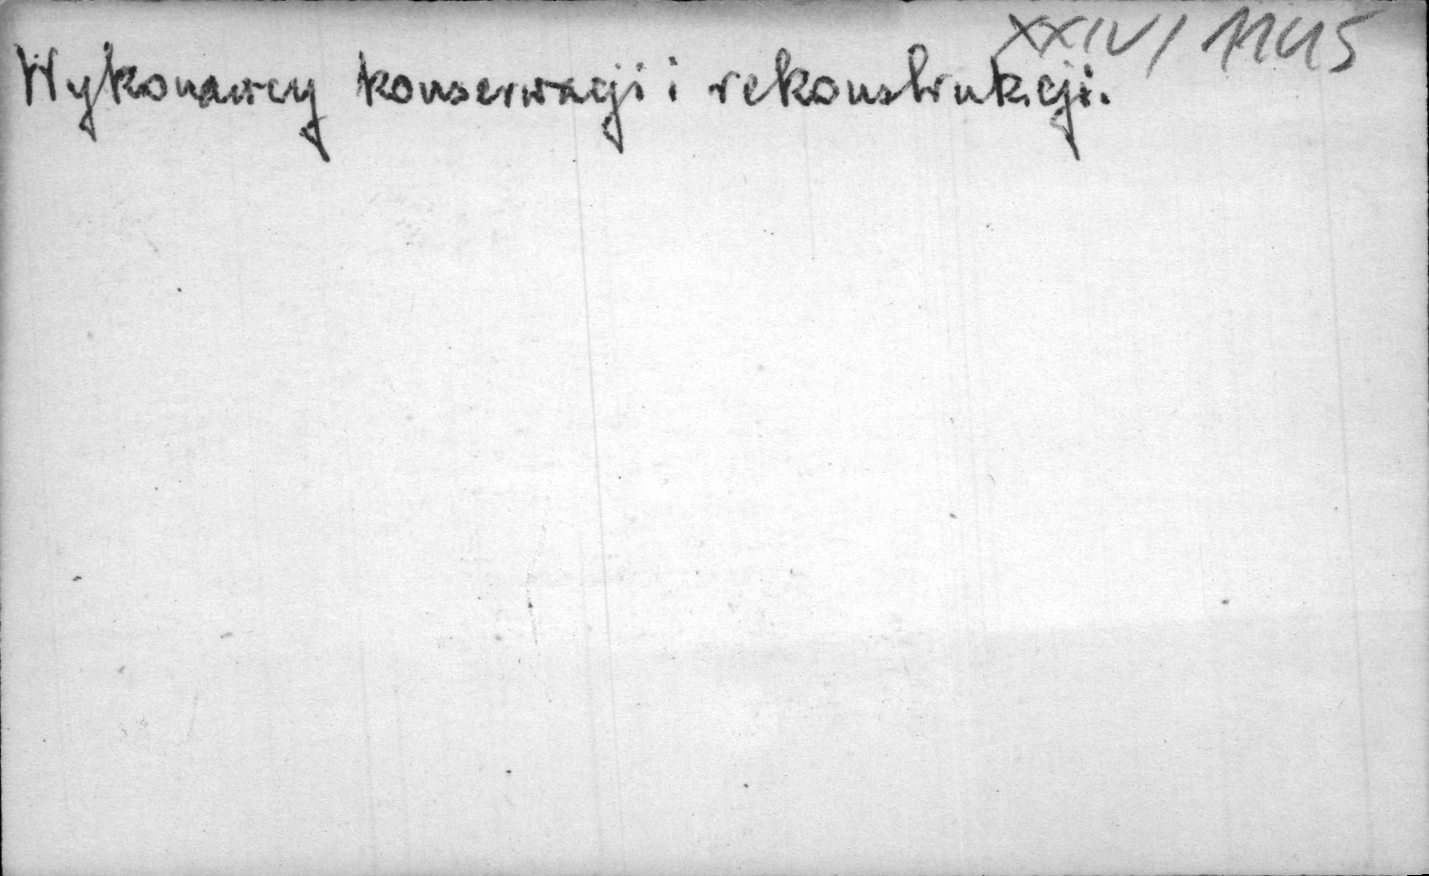 XXIV/1145
Wykonawcy konserwacji i rekonstrukcji.